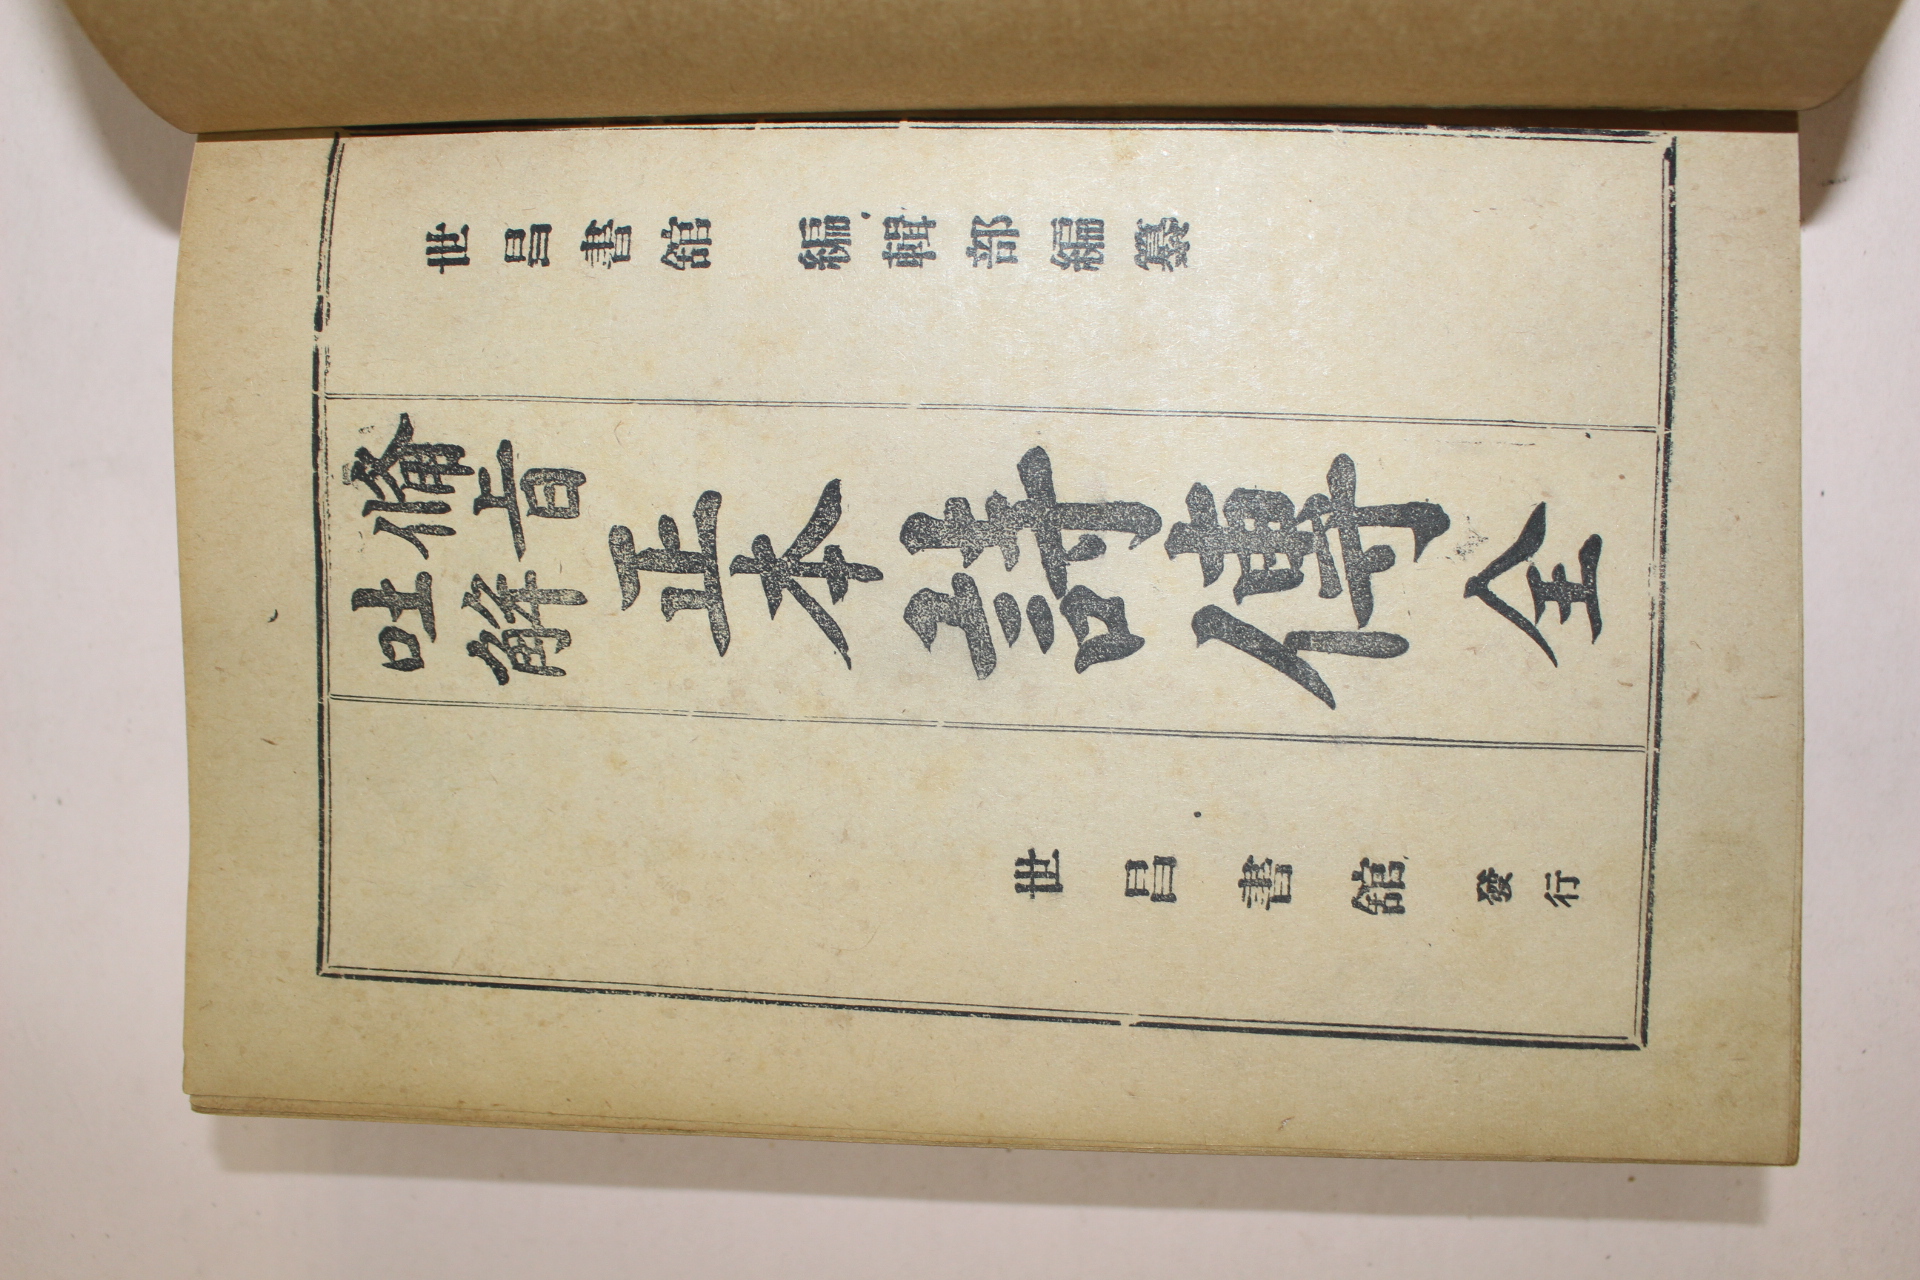 世昌書舘 編輯部編纂
備旨
吐解
正本詩傳 全
世昌書舘 發行